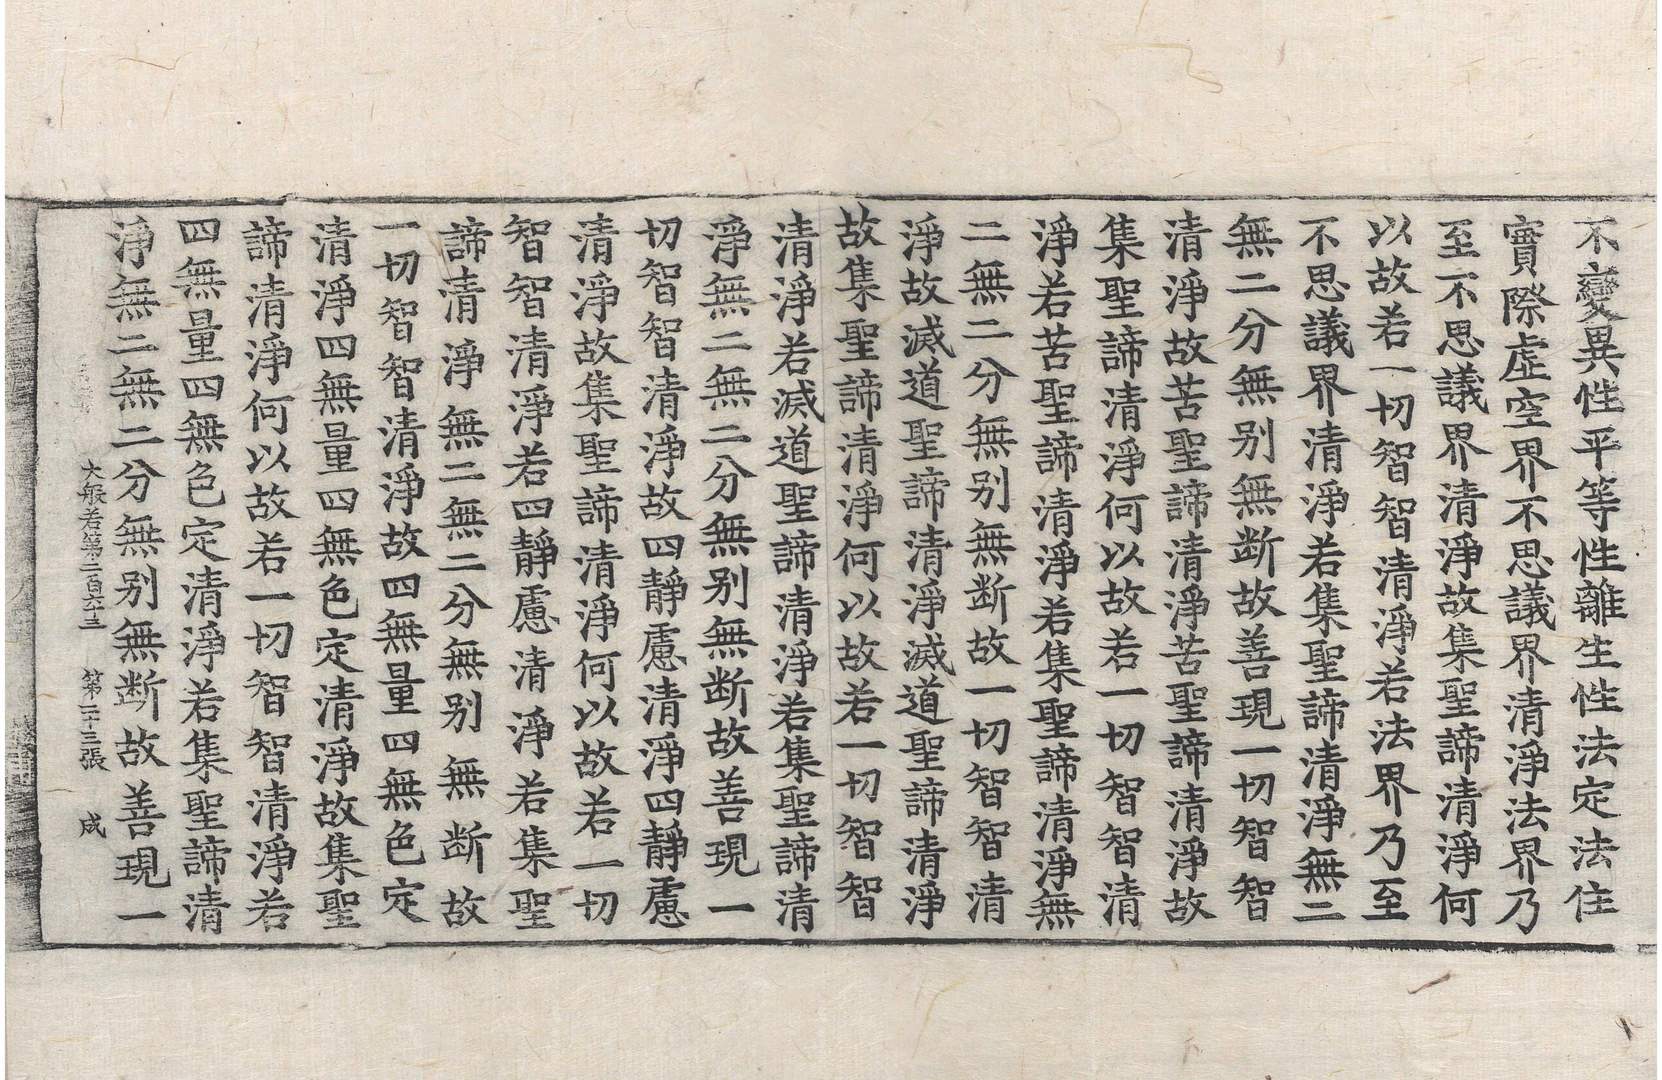 不變異性平等性離生性法定法住
實際虛空界不思議界清淨法界乃
至不思議界清淨故集聖諦清淨何
以故若一切智智清淨若法界乃至
不思議界清淨若集聖諦清淨無二
無二分無別無断故善現一切智智
清淨故苦聖諦清淨苦聖諦清淨故
集聖諦清淨何以故若一切智智清
淨若苦聖諦清淨若集聖諦清淨無
二無二分無別無断故一切智智清
淨故滅道聖諦清淨滅道聖諦清淨
故集聖諦清淨何以故若一切智智
清淨若滅道聖諦清淨若集聖諦清
淨無二無二分無別無断故善現一
切智智清淨故四靜慮清淨四靜慮
清淨故集聖諦清淨何以故若一切
智智清淨若四靜慮清淨若集聖
諦清淨無二無二分無別無断故
一切智智清淨故四無量四無色定
清淨四無量四無色定清淨故集聖
諦清淨何以故若一切智智清淨若
四無量四無色定清淨若集聖諦清
淨無二無二分無別無断故善現一
大般若第二百六十三 第二十三張 成